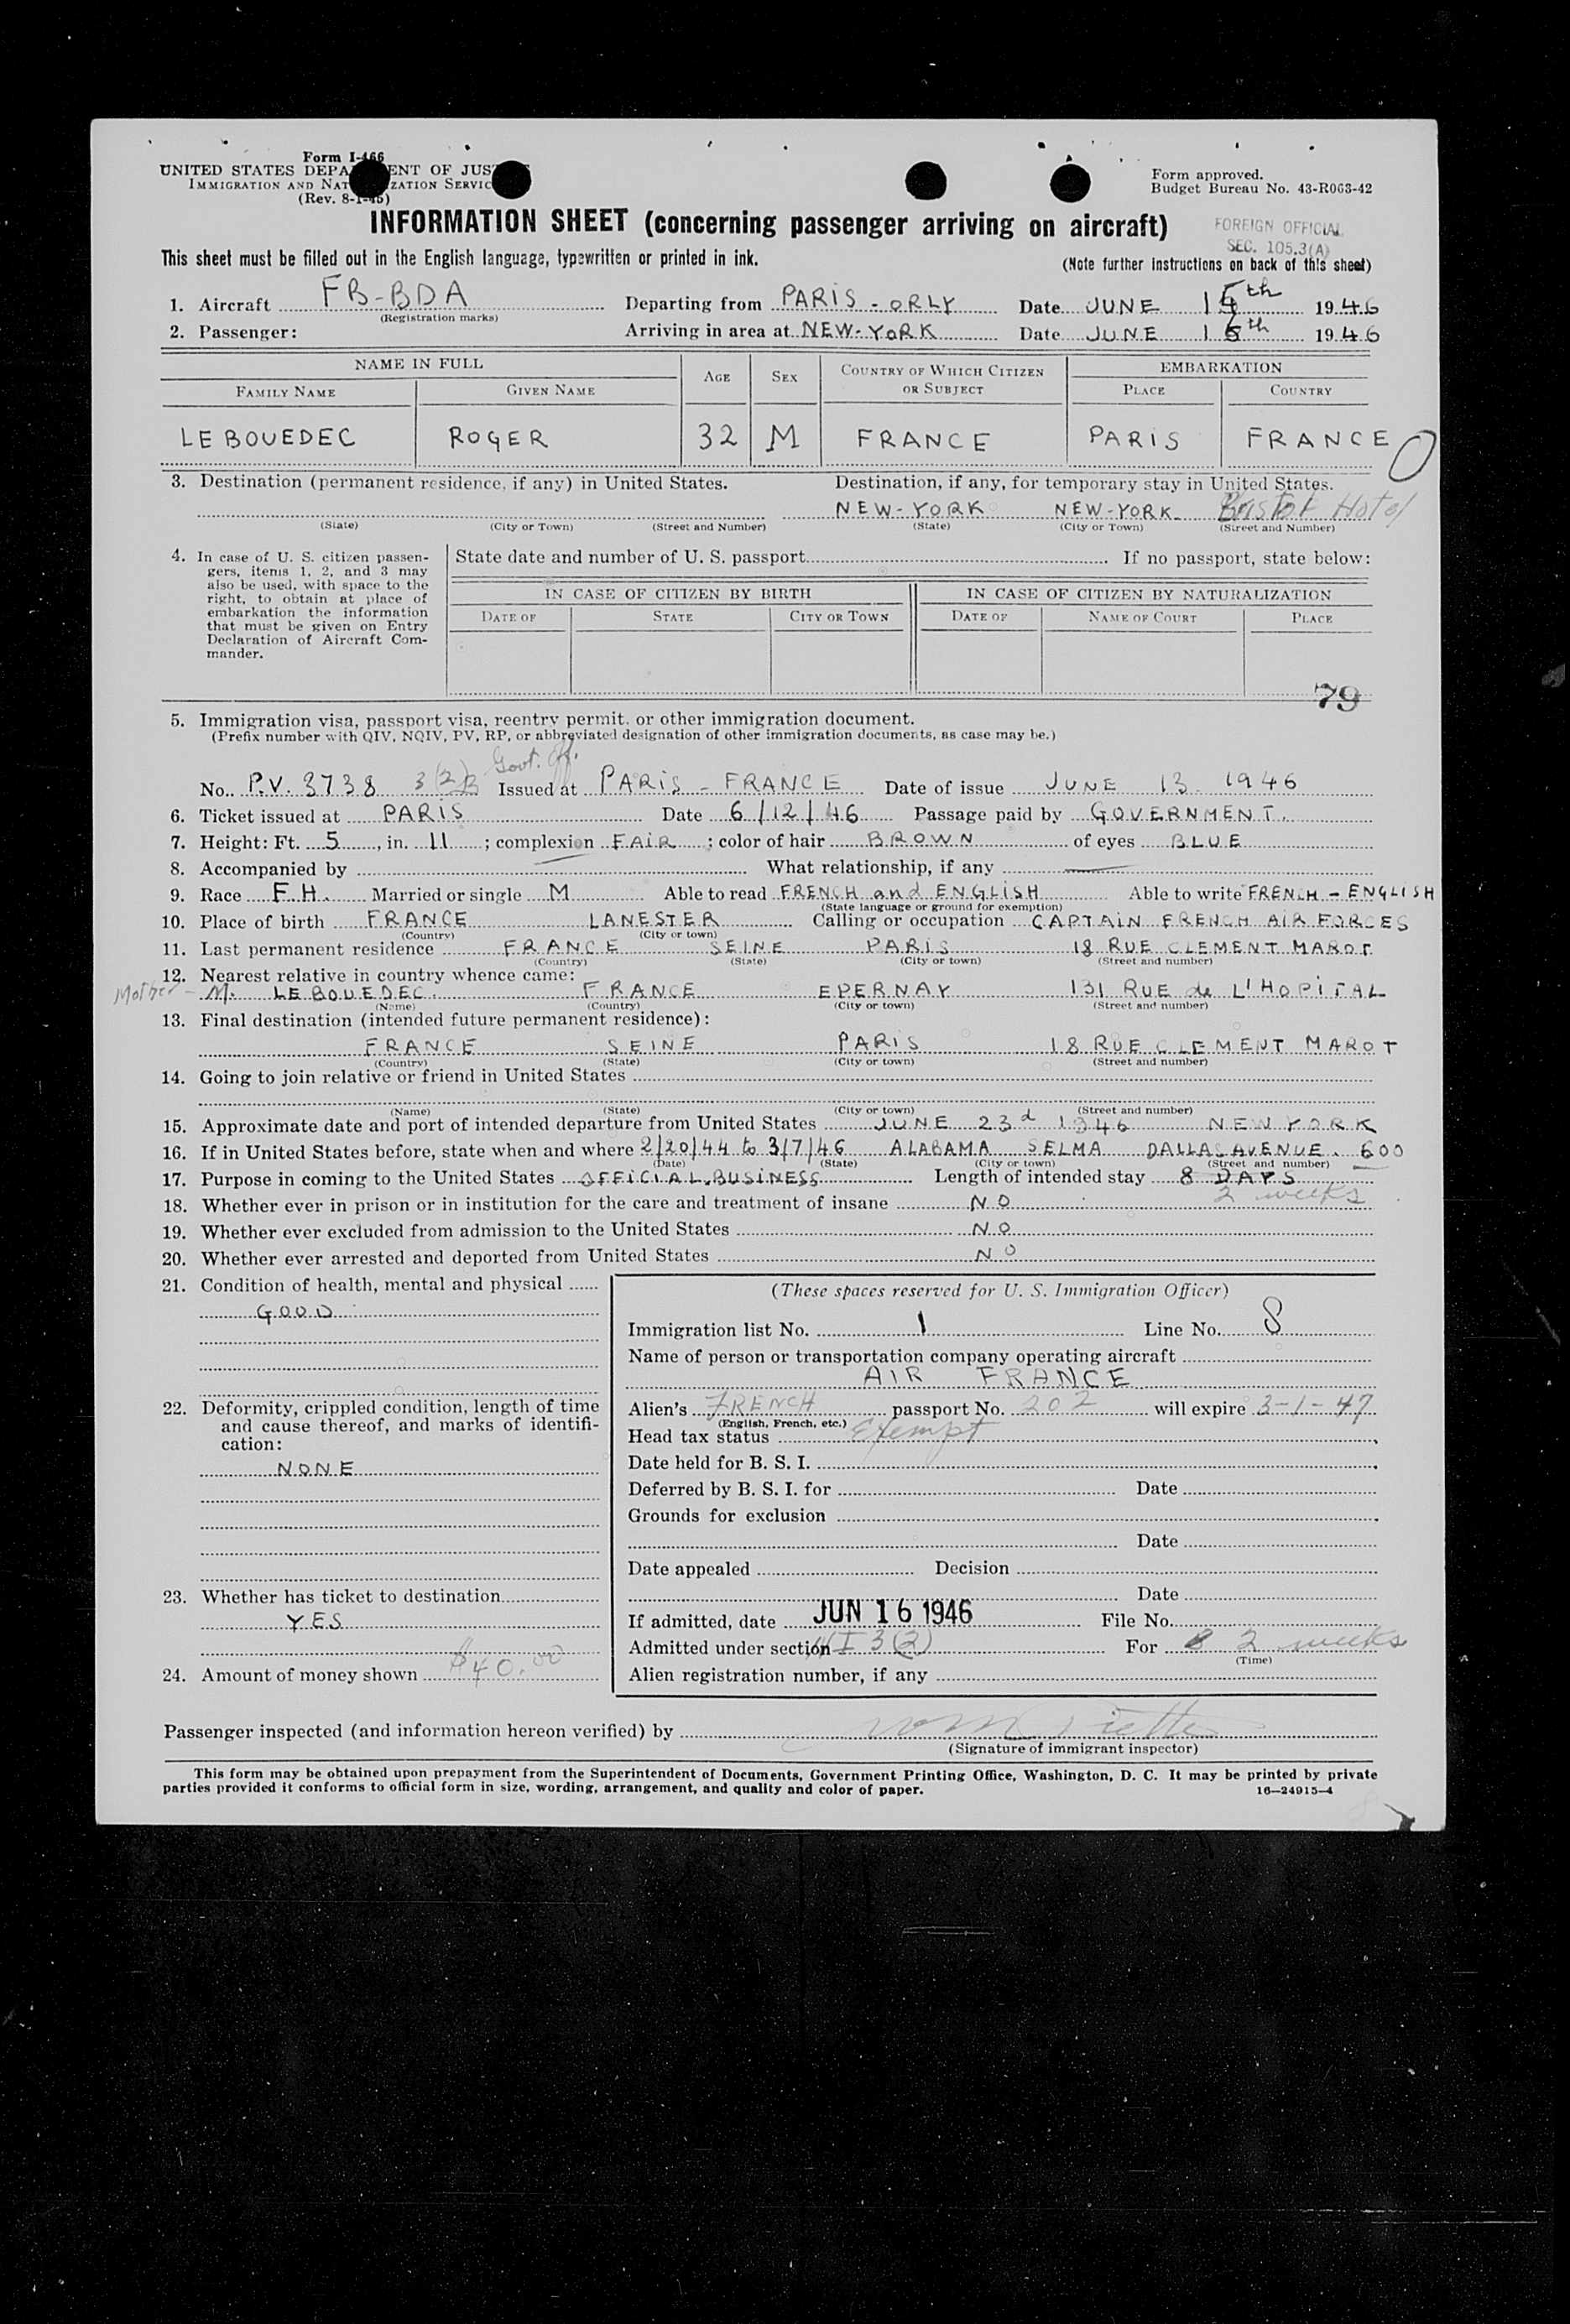 Form I-466
UNITED STATES DEPA ENT OF JUS
IMMIGRATION AND NAT ZATION SERVIC
(Rev. 8-1-45)
Form approved.
Budget Bureau No. 43-R063-42
INFORMATION SHEET (concerning passenger arriving on aircraft)
FOREIGN OFFICIAL
SEC. 105.3(A)
This sheet must be filled out in the English language, typewritten or printed in ink.
(Note further instructions on back of this sheet)
1. Aircraft FB-BDA Departing from PARIS - ORLY Date JUNE 15th 1946
(Registration marks)
2. Passenger: Arriving in area at NEW-YORK Date JUNE 16th 1946
NAME IN FULL AGE SEX COUNTRY OF WHICH CITIZEN OR SUBJECT EMBARKATION
FAMILY NAME GIVEN NAME PLACE COUNTRY
LE BOUEDEC ROGER 32 M FRANCE PARIS FRANCE
3. Destination (permanent residence, if any) in United States. Destination, if any, for temporary stay in United States.
NEW-YORK NEW-YORK Bristol Hotel
(State) (City or Town) (Street and Number) (State) (City or Town) (Street and Number)
4. In case of U. S. citizen passen-
gers, items 1, 2, and 3 may
also be used, with space to the
right, to obtain at place of
embarkation the information
that must be given on Entry
Declaration of Aircraft Com-
mander.
State date and number of U. S. passport If no passport, state below:
IN CASE OF CITIZEN BY BIRTH IN CASE OF CITIZEN BY NATURALIZATION
DATE OF STATE CITY OR TOWN DATE OF NAME OF COURT PLACE
79
5. Immigration visa, passport visa, reentry permit, or other immigration document.
(Prefix number with QIV, NQIV, PV, RP, or abbreviated designation of other immigration documents, as case may be.)
Govt. Off.
No. P.V. 3738 3(2) Issued at PARIS - FRANCE Date of issue JUNE 13. 1946
6. Ticket issued at PARIS Date 6/12/46 Passage paid by GOVERNMENT.
7. Height: Ft. 5, in. 11; complexion FAIR; color of hair BROWN of eyes BLUE
8. Accompanied by What relationship, if any
9. Race F.H. Married or single M Able to read FRENCH and ENGLISH Able to write FRENCH - ENGLISH
(State language or ground for exemption)
10. Place of birth FRANCE LANESTER Calling or occupation CAPTAIN FRENCH AIR FORCES
(Country) (City or town)
11. Last permanent residence FRANCE SEINE PARIS 18 RUE CLEMENT MAROT
(Country) (State) (City or town) (Street and number)
12. Nearest relative in country whence came:
Mother - M. LE BOUEDEC. FRANCE EPERNAY 131 RUE de L'HOPITAL
(Name) (Country) (City or town) (Street and number)
13. Final destination (intended future permanent residence):
FRANCE SEINE PARIS 18 RUE CLEMENT MAROT
(Country) (State) (City or town) (Street and number)
14. Going to join relative or friend in United States
(Name) (State) (City or town) (Street and number)
15. Approximate date and port of intended departure from United States JUNE 23d 1946 NEW YORK
16. If in United States before, state when and where 2/20/44 to 3/7/46 ALABAMA SELMA DALLAS AVENUE. 600
(Date) (State) (City or town) (Street and number)
17. Purpose in coming to the United States OFFICIAL BUSINESS Length of intended stay 8 DAYS
2 weeks
18. Whether ever in prison or in institution for the care and treatment of insane NO
19. Whether ever excluded from admission to the United States NO
20. Whether ever arrested and deported from United States NO
21. Condition of health, mental and physical
GOOD
22. Deformity, crippled condition, length of time
and cause thereof, and marks of identifi-
cation:
NONE
23. Whether has ticket to destination
YES
24. Amount of money shown $40.00
(These spaces reserved for U. S. Immigration Officer)
Immigration list No. 1 Line No. 8
Name of person or transportation company operating aircraft
AIR FRANCE
Alien's FRENCH passport No. 202 will expire 3-1-47
(English, French, etc.)
Head tax status Exempt
Date held for B. S. I.
Deferred by B. S. I. for Date
Grounds for exclusion
Date
Date appealed Decision
Date
If admitted, date JUN 16 1946 File No.
Admitted under section 3(2) For 2 weeks
(Time)
Alien registration number, if any
Passenger inspected (and information hereon verified) by
(Signature of immigrant inspector)
This form may be obtained upon prepayment from the Superintendent of Documents, Government Printing Office, Washington, D. C. It may be printed by private
parties provided it conforms to official form in size, wording, arrangement, and quality and color of paper.
16—24915-4